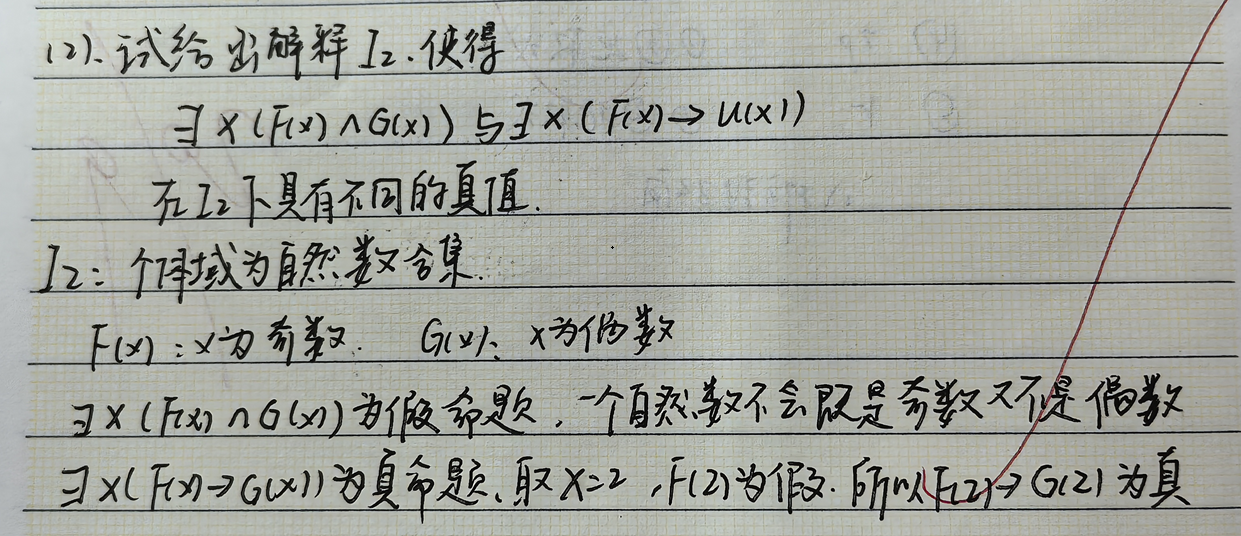 (2). 试给出解释 I₂. 使得
∃x(F(x)∧G(x)) 与 ∃x(F(x)→U(x))
在 I₂ 下具有不同的真值.
I₂: 个体域为自然数合集.
F(x): x为奇数. G(x): x为偶数
∃x(F(x)∩G(x))为假命题, 一个自然数不会既是奇数又不是偶数
∃x(F(x)→G(x))为真命题, 取x=2, F(2)为假. 所以F(2)→G(2)为真